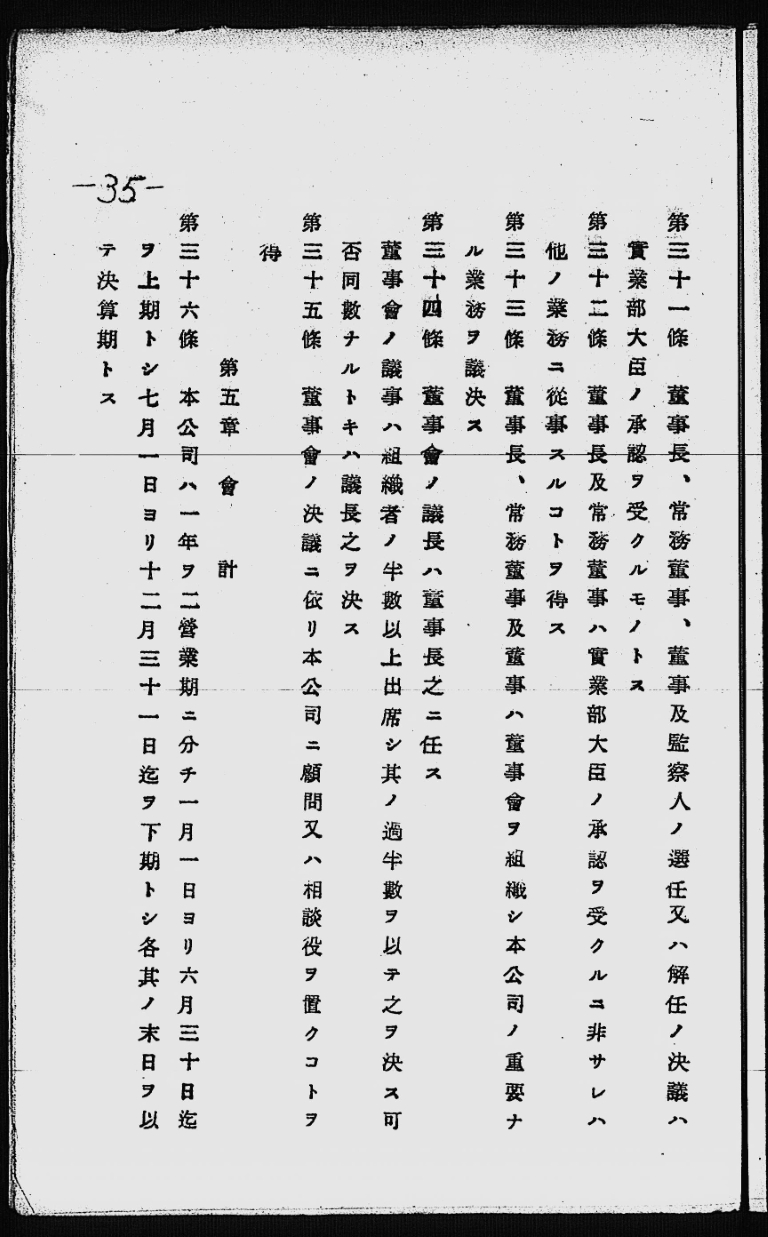 -35-
第三十一條 董事長、常務董事、董事及監察人ノ選任又ハ解任ノ決議ハ
實業部大臣ノ承認ヲ受クルモノトス
第三十二條 董事長及常務董事ハ實業部大臣ノ承認ヲ受クルニ非サレハ
他ノ業務ニ從事スルコトヲ得ス
第三十三條 董事長、常務董事及董事ハ董事會ヲ組織シ本公司ノ重要ナ
ル業務ヲ議決ス
第三十四條 董事會ノ議長ハ董事長之ニ任ス
董事會ノ議事ハ組織者ノ半數以上出席シ其ノ過半數ヲ以テ之ヲ決ス可
否同數ナルトキハ議長之ヲ決ス
第三十五條 董事會ノ決議ニ依リ本公司ニ顧問又ハ相談役ヲ置クコトヲ
得
第五章 會 計
第三十六條 本公司ハ一年ヲ二營業期ニ分チ一月一日ヨリ六月三十日迄
ヲ上期トシ七月一日ヨリ十二月三十一日迄ヲ下期トシ各其ノ末日ヲ以
テ決算期トス